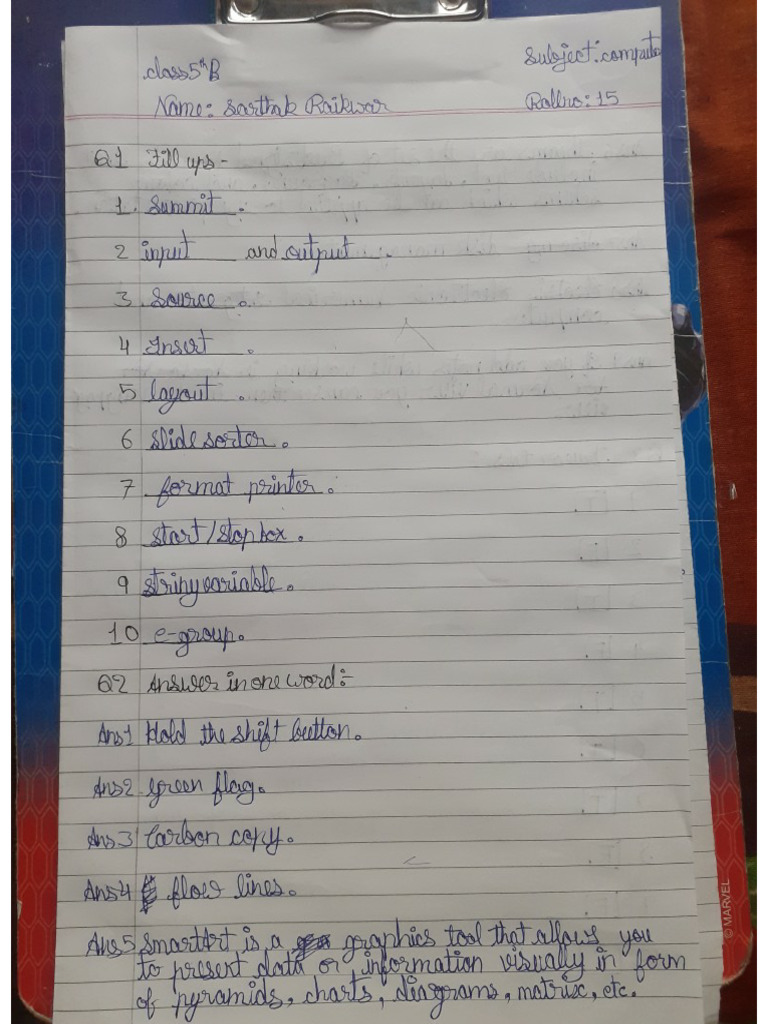 class 5th B
Subject: computer
Name: Sarthak Raikwar
Rollno: 15
Q1 Fill ups -
1. Summit.
2 input and output
3 Source.
4 Insert.
5 layout.
6 slide sorter.
7 format printer.
8 start/stop box.
9 striny variable.
10 e-group.
Q2 Answer in one word:-
Ans1 Hold the shift button.
Ans2 green flag.
Ans3 Carbon copy.
Ans4 flow lines.
Ans5 SmartArt is a graphics tool that allows you
to present data or information visually in form
of pyramids, charts, diagrams, matrix, etc.
© MARVEL